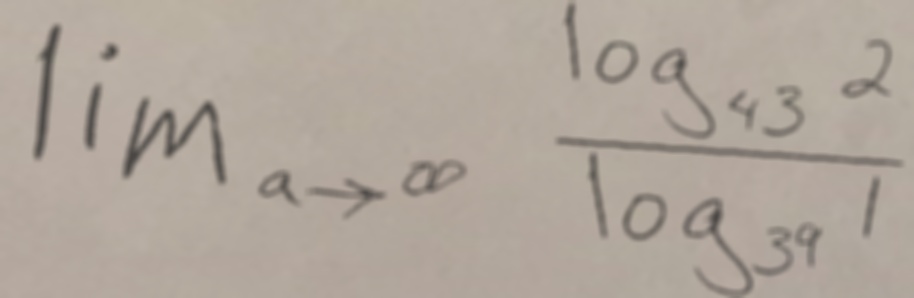 lim a→∞ log₄₃ 2 / log₃₉ 1